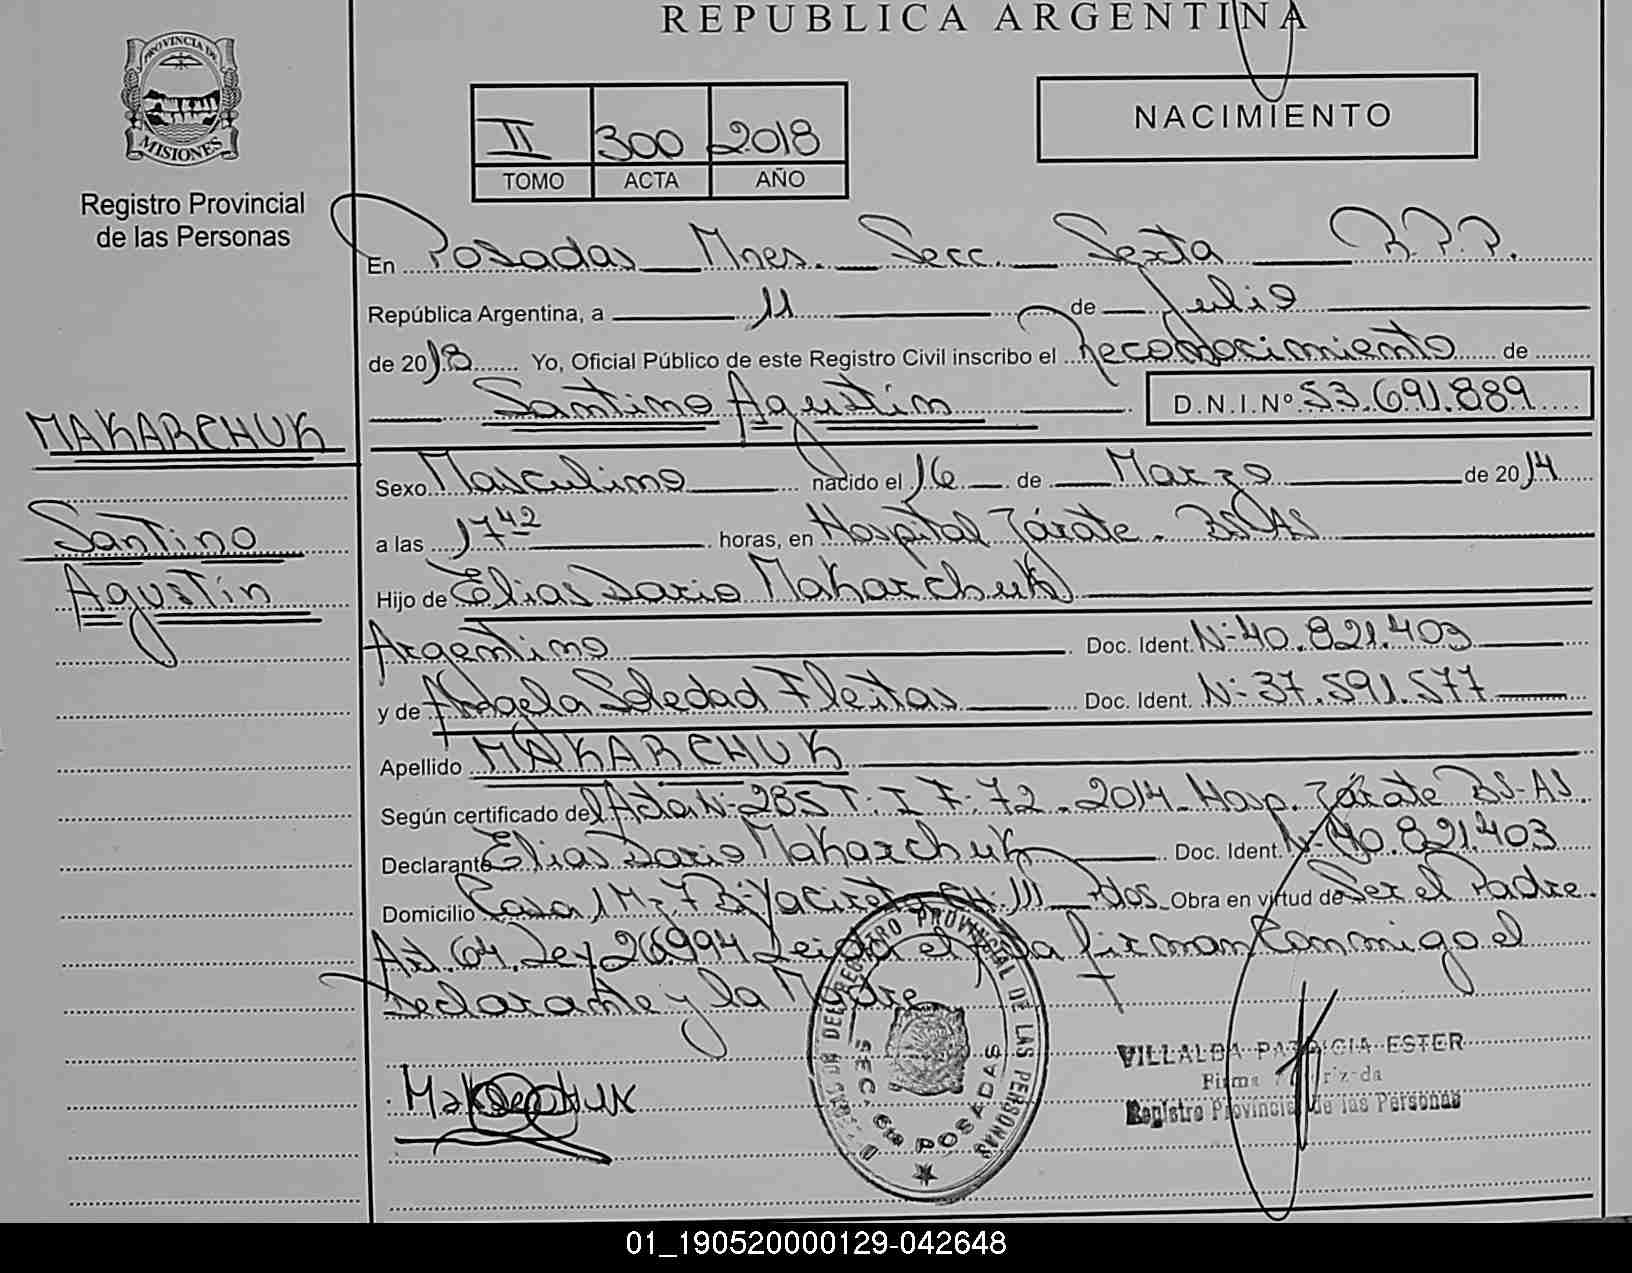 REPUBLICA ARGENTINA
PROVINCIA DE
MISIONES
Registro Provincial
de las Personas
II 300 2018
TOMO ACTA AÑO
NACIMIENTO
En Posadas Mnes. Secc. Sexta R.P.P.
República Argentina, a 11 de Julio
de 2018 Yo, Oficial Público de este Registro Civil inscribo el Reconocimiento de
Santino Agustín D.N.I.Nº 53.691.889
MAKARCHUK
Santino
Agustín
Sexo Masculino nacido el 16 de Marzo de 2014
a las 17 42 horas, en Hospital Zárate. BS-AS
Hijo de Elias Dario Makarchuk
Argentino Doc. Ident. Nº 40.821.403
y de Angela Soledad Fleitas Doc. Ident. Nº 37.591.577
Apellido MAKARCHUK
Según certificado del Acta Nº 285 T. I F. 72 - 2014 - Hosp. Zárate BS-AS.
Declarante Elias Dario Makarchuk Doc. Ident. Nº 40.821.403
Domicilio Casa 1 Mz 7 Bº Yacireta III Pdos. Obra en virtud de Ser el Padre.
Art. 64. Ley 26.994 Leida el Acta firman Conmigo el
Declarante y la Madre
REGISTRO PROVINCIAL DE LAS PERSONAS
SEC. 6ta POSADAS
VILLALBA PATRICIA ESTER
Firma Autorizada
Registro Provincial de las Personas
Makarchuk
01_190520000129-042648